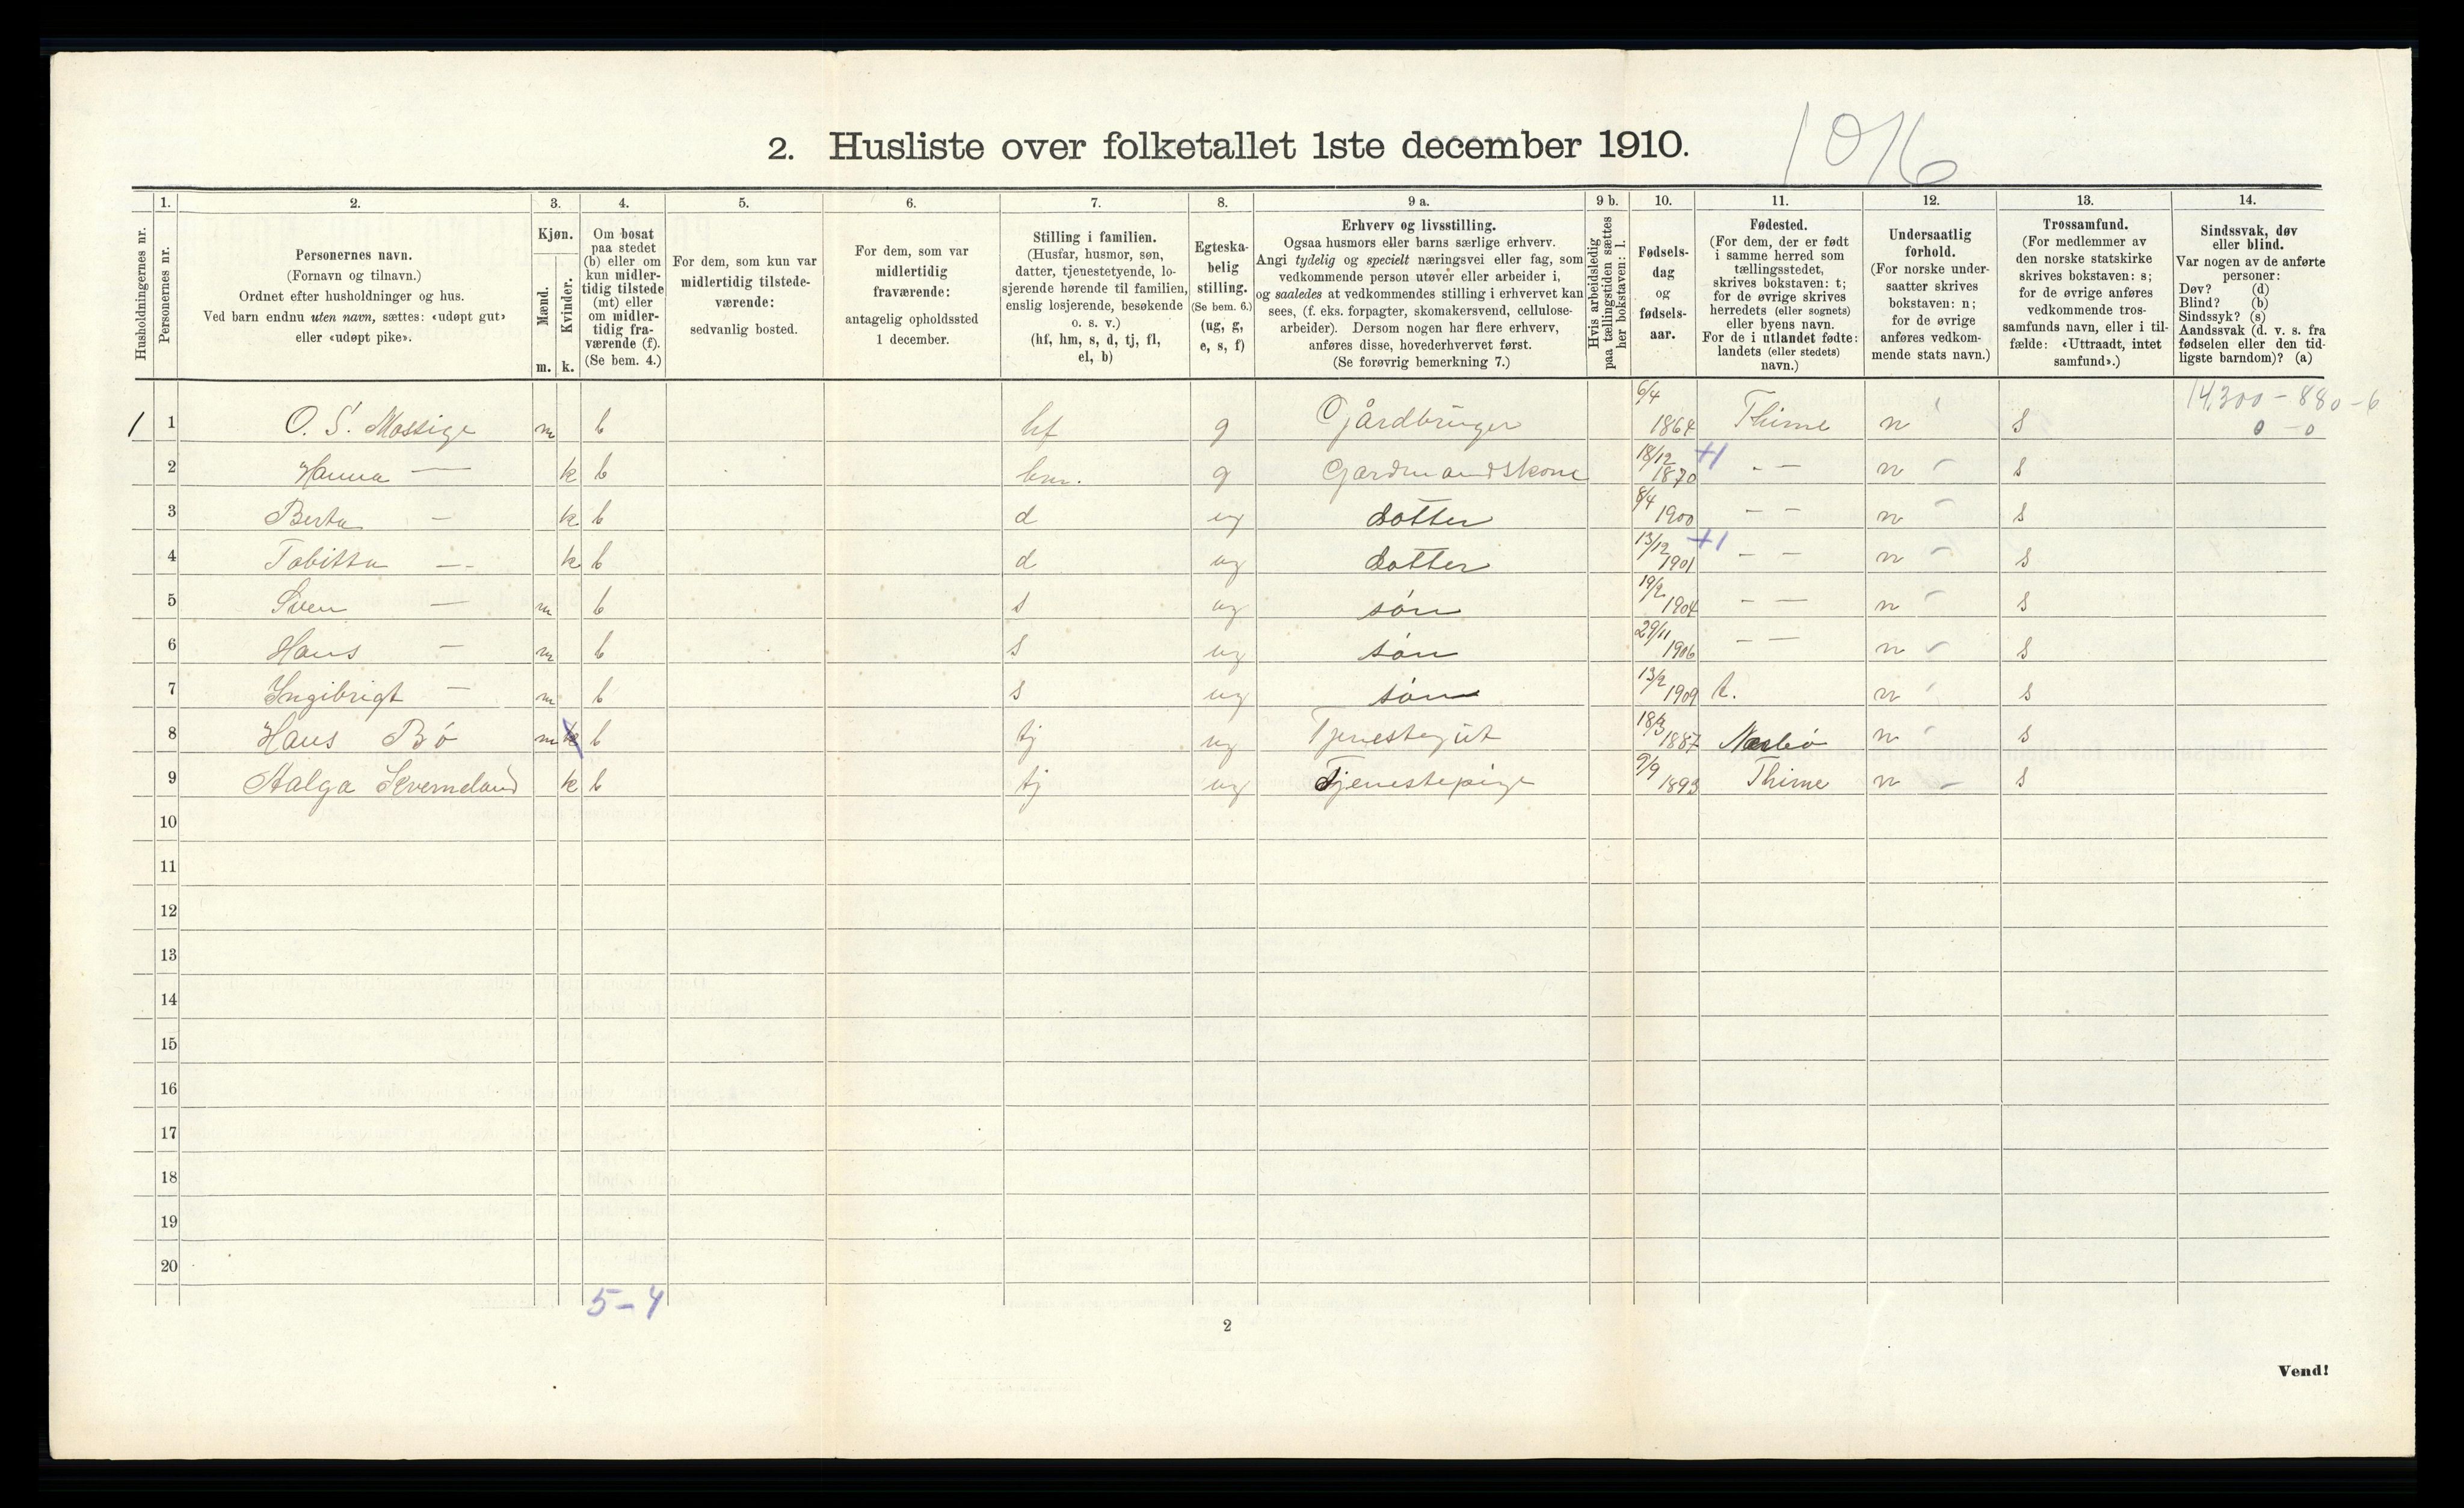 1016
2. Husliste over folketallet 1ste december 1910.
Husholdningernes nr.
1.
Personernes nr.
2.
Personernes navn.
(Fornavn og tilnavn.)
Ordnet efter husholdninger og hus.
Ved barn endnu uten navn, sættes: «udøpt gut»
eller «udøpt pike».
3.
Kjøn.
Mænd.
Kvinder.
m. k.
4.
Om bosat
paa stedet
(b) eller om
kun midler-
tidig tilstede
(mt) eller
om midler-
tidig fra-
værende (f).
(Se bem. 4.)
5.
For dem, som kun var
midlertidig tilstede-
værende:
sedvanlig bosted.
6.
For dem, som var
midlertidig
fraværende:
antagelig opholdssted
1 december.
7.
Stilling i familien.
(Husfar, husmor, søn,
datter, tjenestetyende, lo-
sjerende hørende til familien,
enslig losjerende, besøkende
o. s. v.)
(hf, hm, s, d, tj, fl,
el, b)
8.
Egteska-
belig
stilling.
(Se bem. 6.)
(ug, g,
e, s, f)
9 a.
Erhverv og livsstilling.
Ogsaa husmors eller barns særlige erhverv.
Angi tydelig og specielt næringsvei eller fag, som
vedkommende person utøver eller arbeider i,
og saaledes at vedkommendes stilling i erhvervet kan
sees, (f. eks. forpagter, skomakersvend, cellulose-
arbeider). Dersom nogen har flere erhverv,
anføres disse, hovederhvervet først.
(Se forøvrig bemerkning 7.)
9 b.
Hvis arbeidsledig
paa tællingstiden sættes
her bokstaven: l.
10.
Fødsels-
dag
og
fødsels-
aar.
11.
Fødested.
(For dem, der er født
i samme herred som
tællingsstedet,
skrives bokstaven: t;
for de øvrige skrives
herredets (eller sognets)
eller byens navn.
For de i utlandet fødte:
landets (eller stedets)
navn.)
12.
Undersaatlig
forhold.
(For norske under-
saatter skrives
bokstaven: n;
for de øvrige
anføres vedkom-
mende stats navn.)
13.
Trossamfund.
(For medlemmer av
den norske statskirke
skrives bokstaven: s;
for de øvrige anføres
vedkommende tros-
samfunds navn, eller i til-
fælde: «Uttraadt, intet
samfund».)
14.
Sindssvak, døv
eller blind.
Var nogen av de anførte
personer:
Døv? (d)
Blind? (b)
Sindssyk? (s)
Aandssvak (d. v. s. fra
fødselen eller den tid-
ligste barndom)? (a)
14,300 - 880 - 6
1 1 O. S. Mossige m b hf g Gårdbruger 6/4 1864 Thime n s 0 - 0
2 Hanna — k b hm. g Gardmandskone 18/12 1870 +1 - — n s
3 Berta — k b d ug datter 8/4 1900 — — n s
4 Tobitta — k b d ug datter 13/12 1901 +1 — — n s
5 Sven — m b s ug søn 19/2 1904 — — n s
6 Hans — m b s ug søn 29/11 1906 — — n s
7 Ingibrigt — m b s ug søn 13/2 1909 t. n s
8 Hans Bø m k b tj ug Tjenestegut 1887 Nærbø n s
9 Aalga Kverneland k b tj ug Tjenestepige 9/9 1893 Thime n s
10
11
12
13
14
15
16
17
18
19
20
5 - 4
2
Vend!